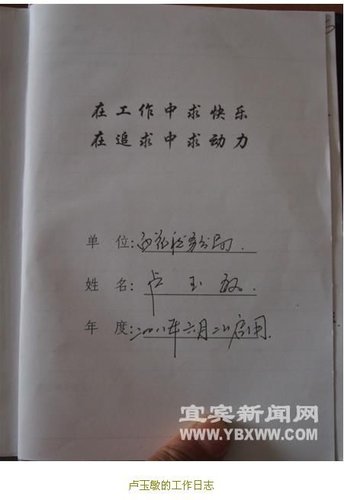 在工作中求快乐
在追求中求动力
单 位:
姓 名:卢玉敏
年 度:二〇一八年六月二日启用.
宜宾新闻网
WWW.YBXWW.COM
卢玉敏的工作日志